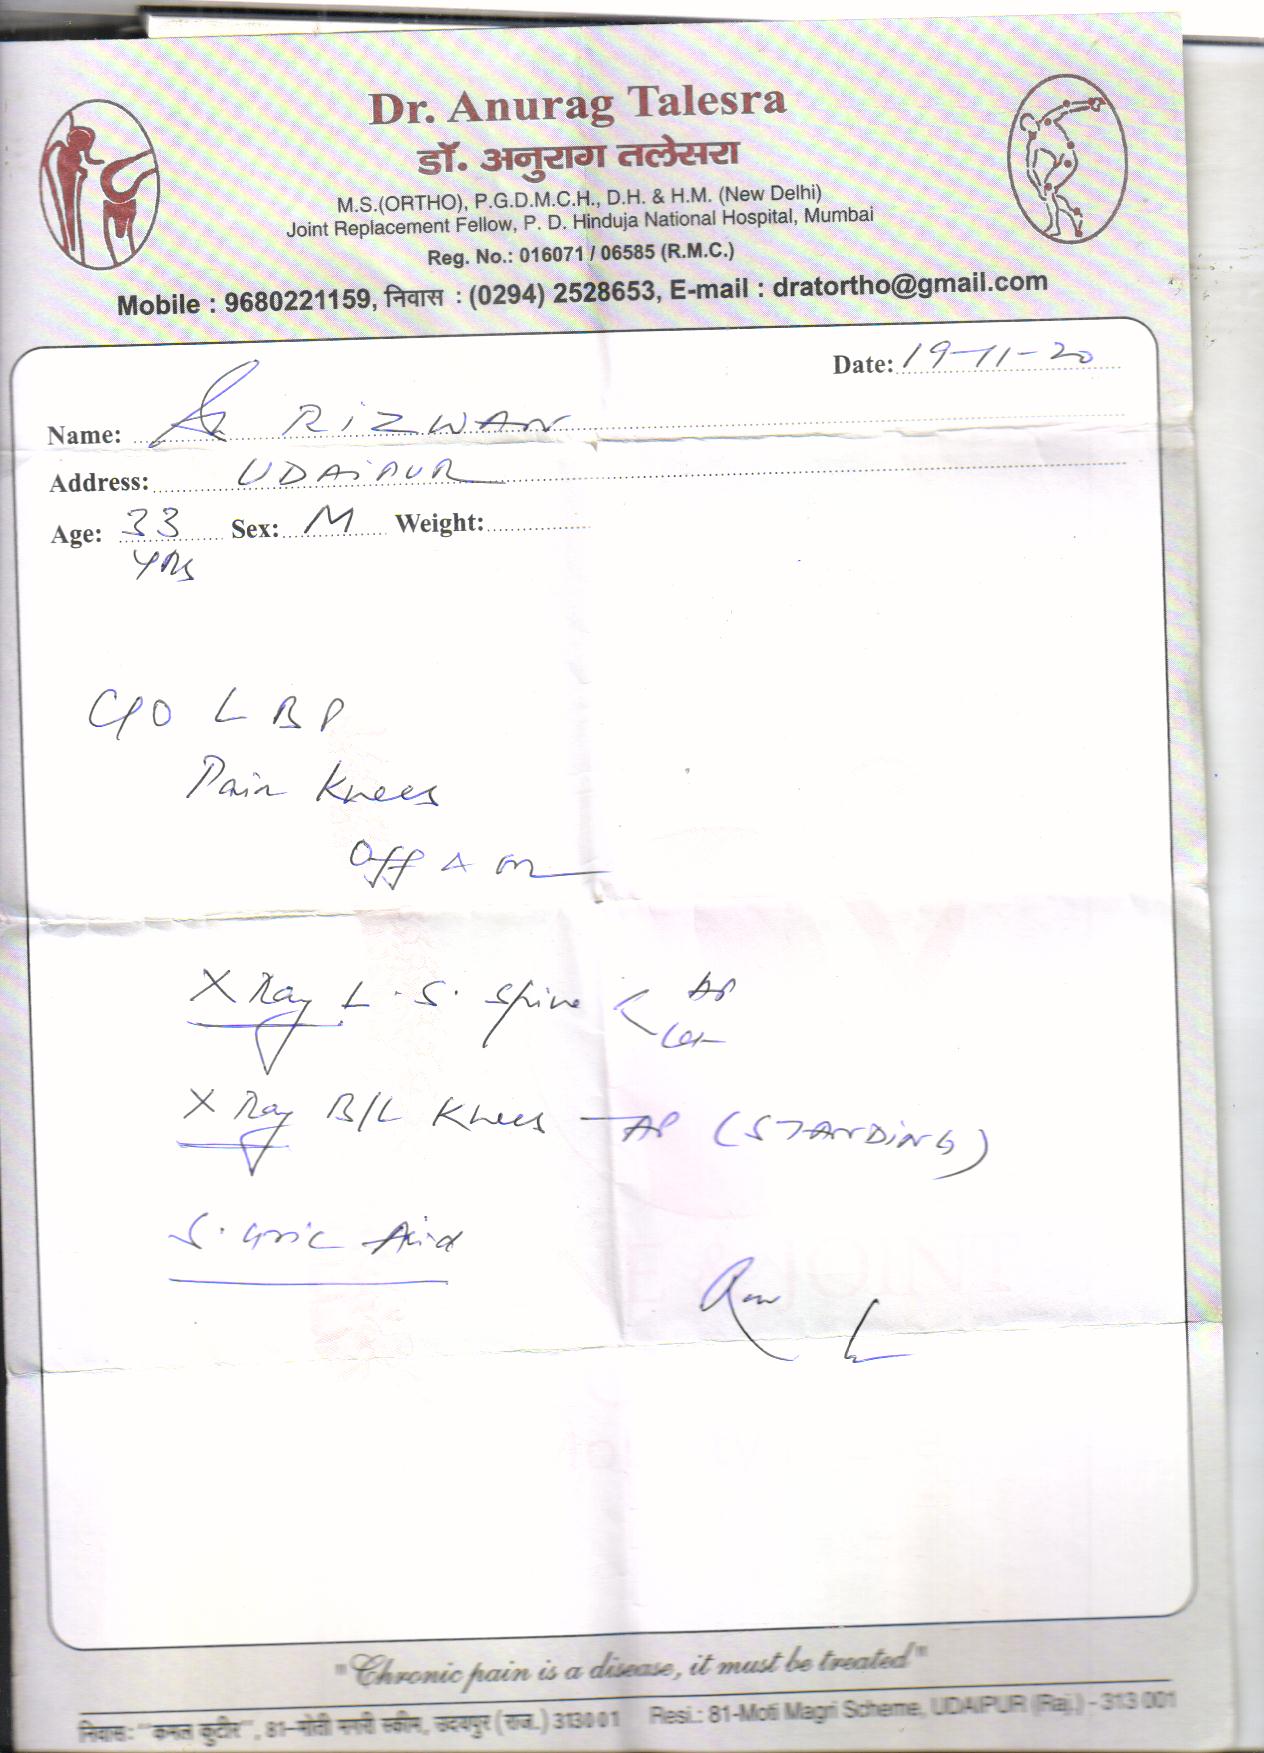 Dr. Anurag Talesra
डॉ. अनुराग तलेसरा
M.S.(ORTHO), P.G.D.M.C.H., D.H. & H.M. (New Delhi)
Joint Replacement Fellow, P. D. Hinduja National Hospital, Mumbai
Reg. No.: 016071 / 06585 (R.M.C.)
Mobile : 9680221159, निवास : (0294) 2528653, E-mail : dratortho@gmail.com
Date: 19-11-20
Name: RIZWAN
Address: UDAIPUR
Age: 33 Sex: M Weight:
yrs
C/O L B P
Pain Knees
Off & on
X Ray L.S. Spine < AP
Lat
X Ray B/L Knees - AP (STANDING)
S. Uric Acid
"Chronic pain is a disease, it must be treated"
निवास: "कमल कुटीर", 81-मोती मगरी स्कीम, उदयपुर (राज.) 313001 Resi.: 81-Moti Magri Scheme, UDAIPUR (Raj.) - 313 001